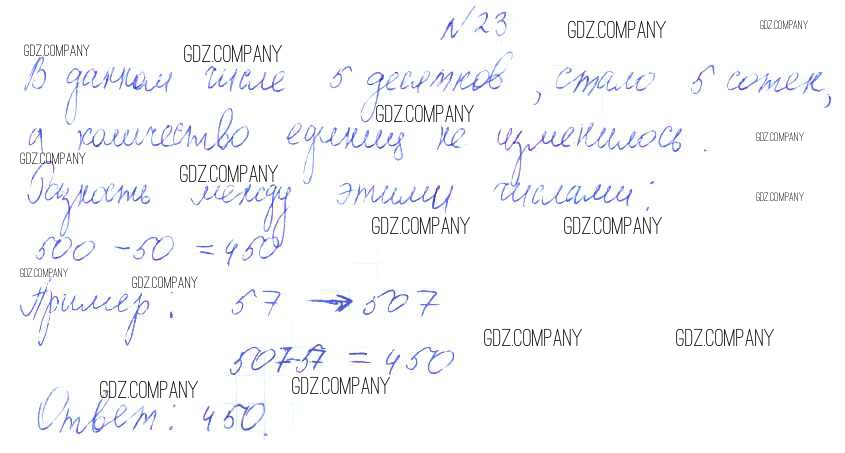 № 23
В данном числе 5 десятков, стало 5 сотен,
а количество единиц не изменилось.
Разность между этими числами:
500 - 50 = 450
Пример: 57 → 507
507-57 = 450
Ответ: 450.
GDZ.COMPANY GDZ.COMPANY
GDZ.COMPANY GDZ.COMPANY
GDZ.COMPANY
GDZ.COMPANY
GDZ.COMPANY GDZ.COMPANY
GDZ.COMPANY
GDZ.COMPANY GDZ.COMPANY
GDZ.COMPANY GDZ.COMPANY
GDZ.COMPANY GDZ.COMPANY
GDZ.COMPANY GDZ.COMPANY